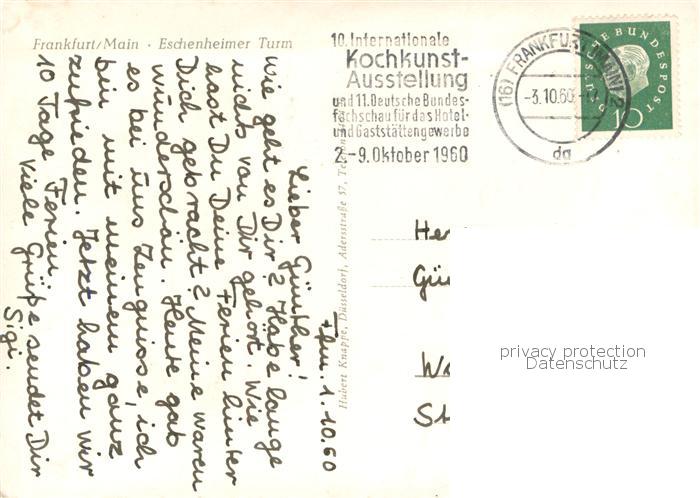 Frankfurt/Main · Eschenheimer Turm
10. Internationale
Kochkunst-
Ausstellung
und 11. Deutsche Bundes-
fachschau für das Hotel-
und Gaststättengewerbe
2.-9. Oktober 1960
(16) FRANKFURT (MAIN) 2
-3.10.60.
da
DEUTSCHE BUNDESPOST
10
Ffm. 1.10.60
Lieber Günther!
Wie geht es Dir? Habe lange
nichts von Dir gehört. Wie
hast Du Deine Ferien hinter
Dich gebracht? Meine waren
wunderschön. Heute gab
es bei uns Zeugnisse, ich
bin mit meinem ganz
zufrieden. Jetzt haben wir
10 Tage Ferien.
Viele Grüße sendet Dir
Sigi.
Hubert Knappe, Düsseldorf, Adersstraße 57,
He
Gü
W
St
privacy protection
Datenschutz